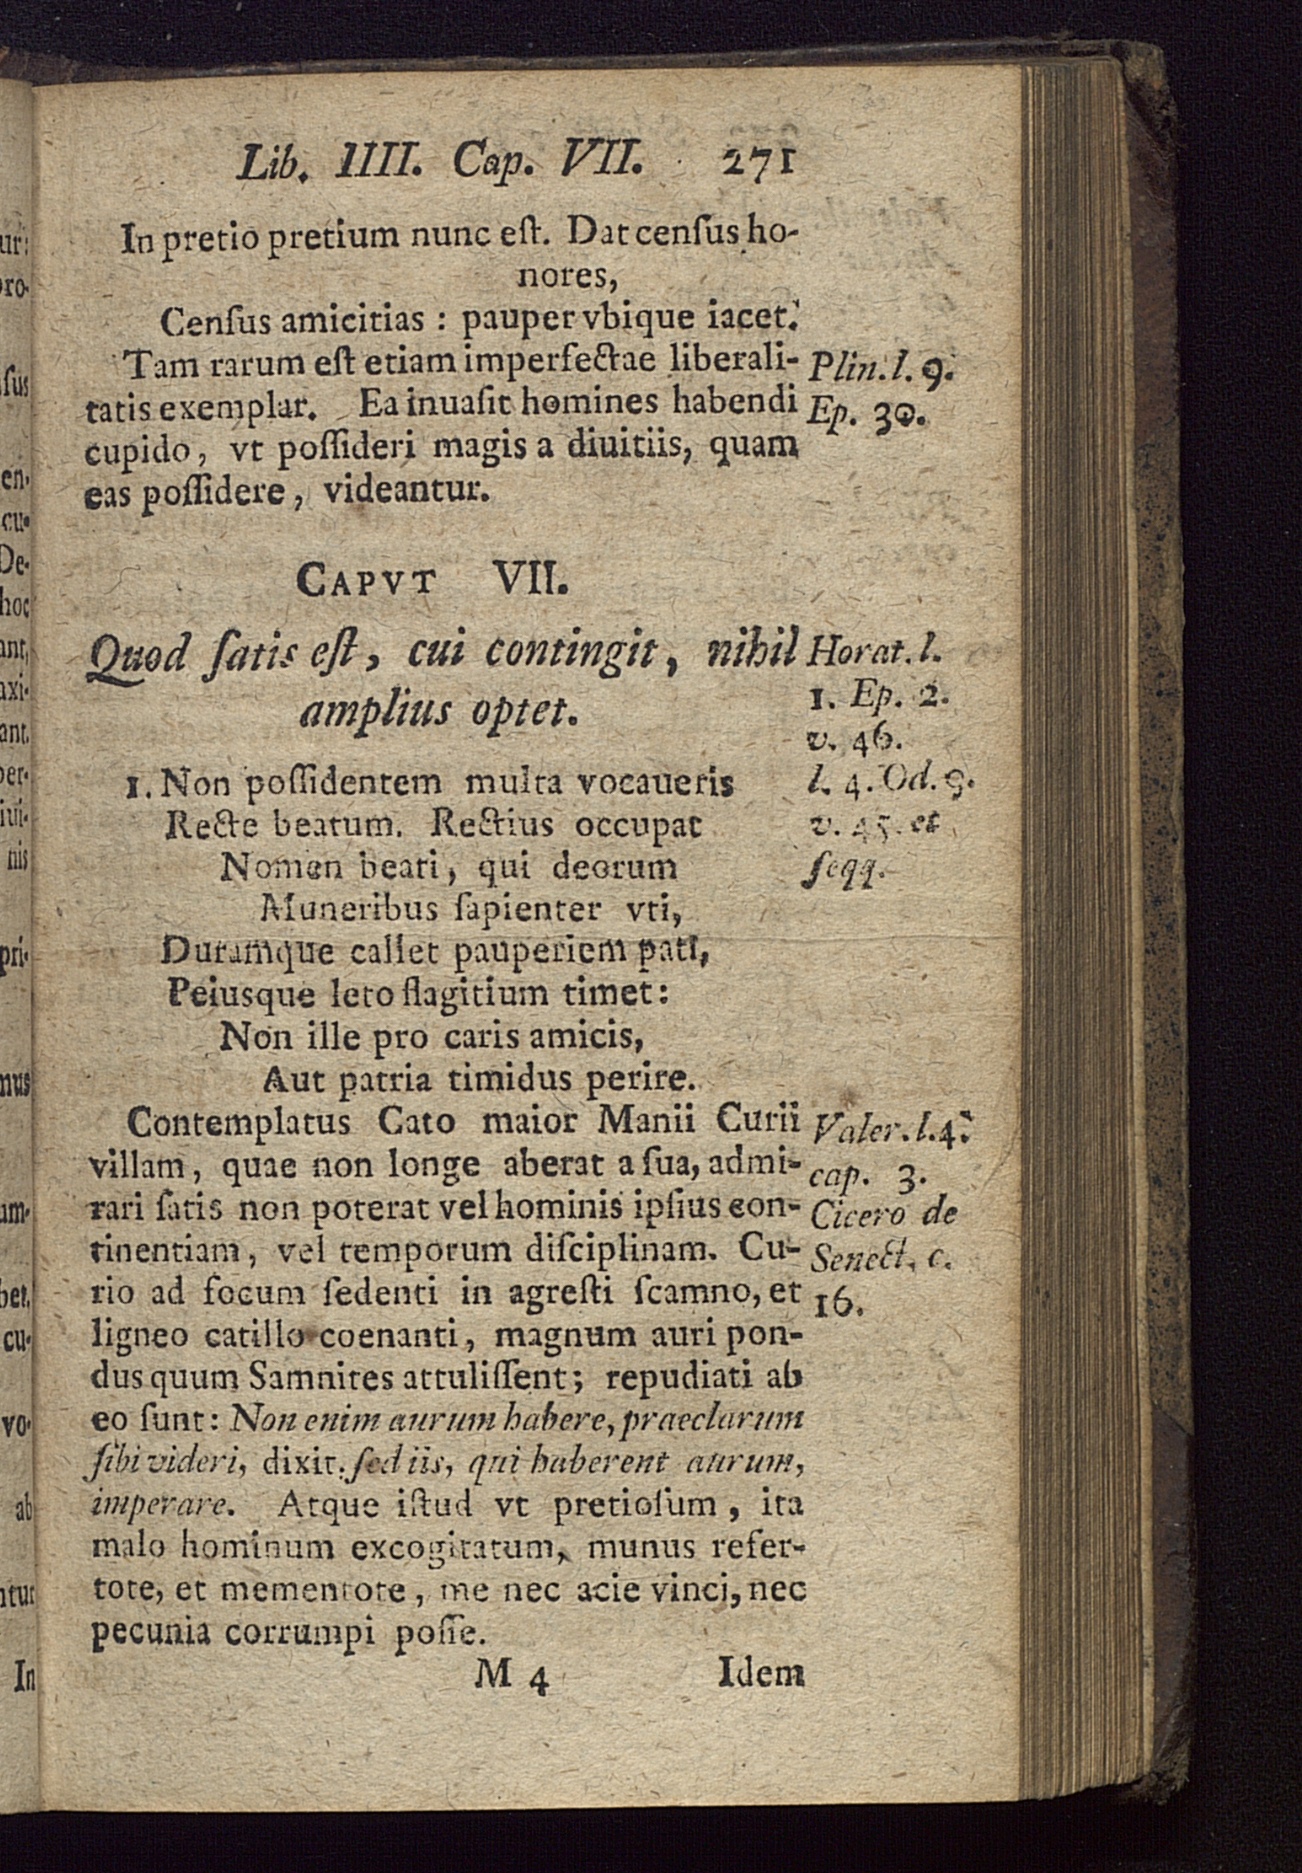 Lib. IIII. Cap. VII. 271
In pretio pretium nunc eſt. Dat cenſus ho-
nores,
Cenſus amicitias : pauper vbique iacet.
Tam rarum eſt etiam imperfectae liberali-
tatis exemplar. Ea inuaſit homines habendi
cupido, vt poſſideri magis a diuitiis, quam
eas poſſidere, videantur.
Plin. l. 9.
Ep. 30.
CAPVT VII.
Quod ſatis eſt, cui contingit, nihil
amplius optet.
Horat. l.
1. Ep. 2.
v. 46.
1. Non poſſidentem multa vocaueris
Recte beatum. Rectius occupat
Nomen beati, qui deorum
Muneribus ſapienter vti,
Duramque callet pauperiem pati,
Peiusque leto flagitium timet:
Non ille pro caris amicis,
Aut patria timidus perire.
l. 4. Od. 9.
v. 45. et
ſeqq.
Contemplatus Cato maior Manii Curii
villam, quae non longe aberat a ſua, admi-
rari ſatis non poterat vel hominis ipſius con-
tinentiam, vel temporum diſciplinam. Cu-
rio ad focum ſedenti in agreſti ſcamno, et
ligneo catillo coenanti, magnum auri pon-
dus quum Samnites attuliſſent; repudiati ab
eo ſunt: Non enim aurum habere, praeclarum
ſibi videri, dixit. ſed iis, qui haberent aurum,
imperare. Atque iſtud vt pretioſum, ita
malo hominum excogitatum, munus refer-
tote, et mementote, me nec acie vinci, nec
pecunia corrumpi poſſe.
Valer. l. 4.
cap. 3.
Cicero de
Senect. c.
16.
M 4 Idem